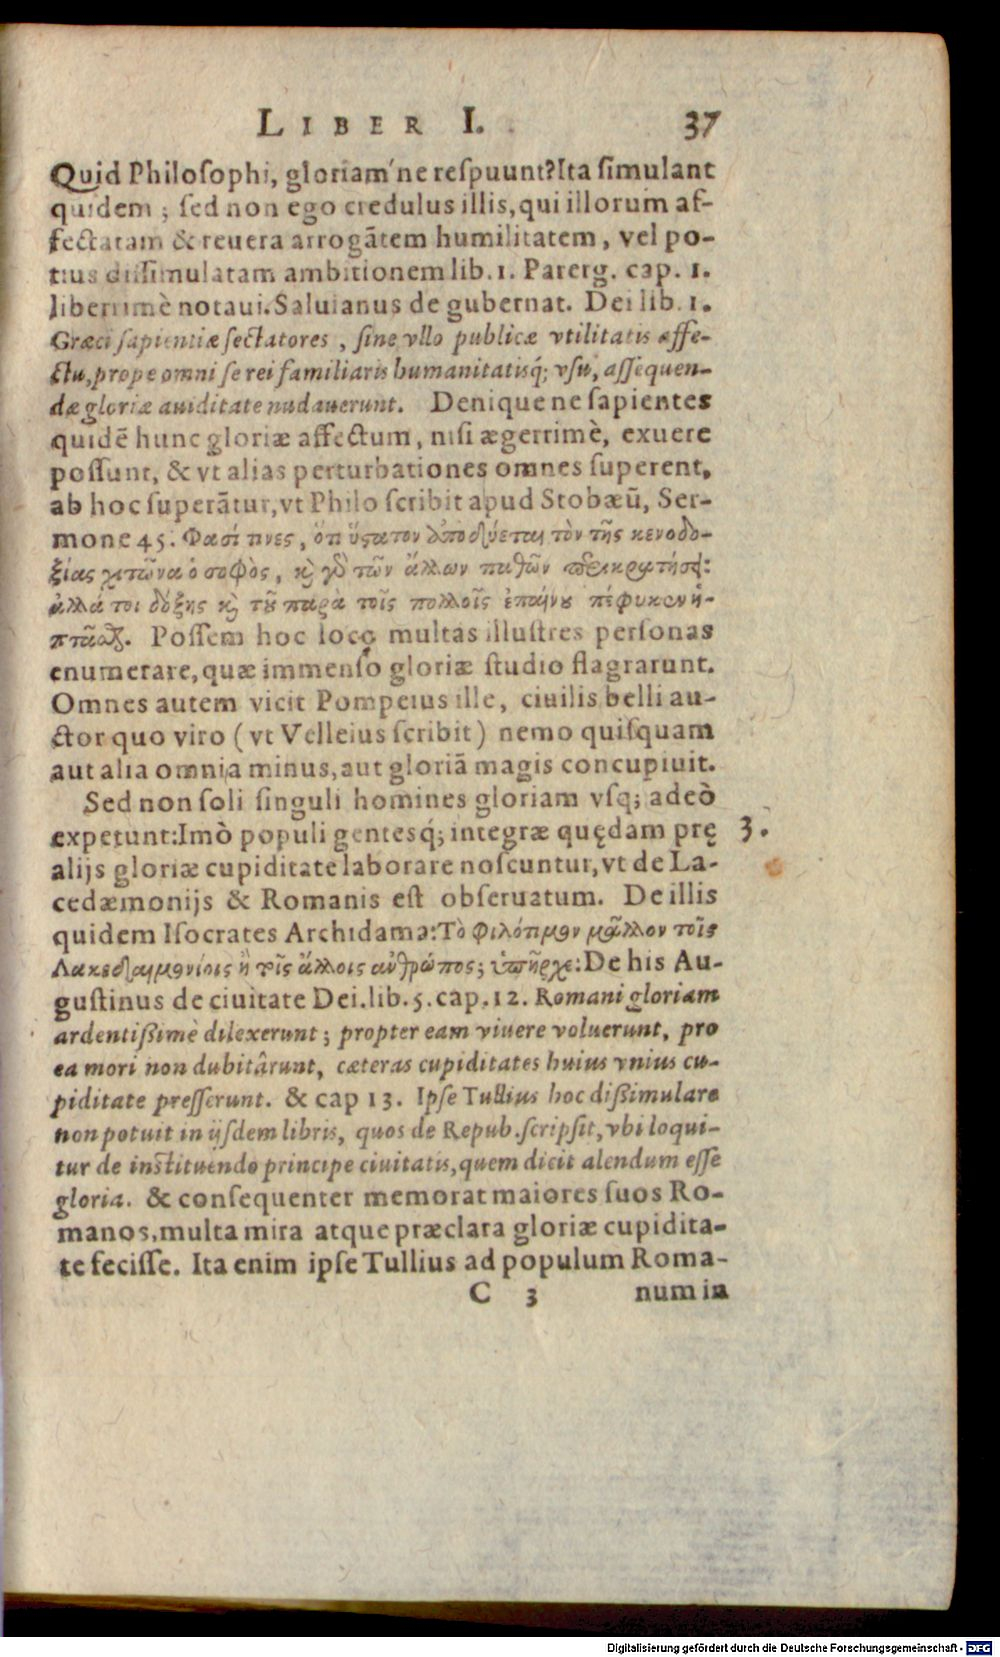 LIBER I. 37
Quid Philoſophi, gloriam'ne reſpuunt? Ita ſimulant
quidem; ſed non ego credulus illis, qui illorum af-
fectatam & reuera arrogãtem humilitatem, vel po-
tius diſſimulatam ambitionem lib. 1. Parerg. cap. 1.
liberrimè notaui. Saluianus de gubernat. Dei lib. 1.
Græci ſapientiæ ſectatores, ſine vllo publicæ vtilitatis affe-
ctu, prope omni ſe rei familiaris humanitatisq́; vſu, aſſequen-
dæ gloriæ auiditate nudauerunt. Denique ne ſapientes
quidẽ hunc gloriæ affectum, niſi ægerrimè, exuere
poſſunt, & vt alias perturbationes omnes ſuperent,
ab hoc ſuperãtur, vt Philo ſcribit apud Stobæũ, Ser-
mone 45. Φασί τινες, ὅτι ὕστατον ἀποδύεται τὸν τῆς κενοδο-
ξίας χιτῶνα ὁ σοφὸς, κὶ γὸ τῶν ἄλλων παθῶν
ἀλλά τοι δόξης κὶ τȣ͂ παρὰ τοῖς πολλοῖς ἐπαίνȣ πέφυκεν ἡ-
Poſſem hoc loco multas illuſtres perſonas
enumerare, quæ immenſo gloriæ ſtudio flagrarunt.
Omnes autem vicit Pompeius ille, ciuilis belli au-
ctor quo viro (vt Velleius ſcribit) nemo quiſquam
aut alia omnia minus, aut gloriã magis concupiuit.
Sed non ſoli ſinguli homines gloriam vſq; adeò
expetunt: Imò populi gentesq́; integræ quędam prę 3.
alijs gloriæ cupiditate laborare noſcuntur, vt de La-
cedæmonijs & Romanis eſt obſeruatum. De illis
quidem Iſocrates Archidamo: Τὸ φιλότιμον μᾶλλον τοῖς
Λακεδαιμονίοις ἢ τοῖς ἄλλοις ἀνθρώποις ὑπῆρχε: De his Au-
guſtinus de ciuitate Dei. lib. 5. cap. 12. Romani gloriam
ardentiſsimè dilexerunt; propter eam viuere voluerunt, pro
ea mori non dubitârunt, cæteras cupiditates huius vnius cu-
piditate preſſerunt. & cap 13. Ipſe Tullius hoc diſsimulare
non potuit in ijſdem libris, quos de Repub. ſcripſit, vbi loqui-
tur de inſtituendo principe ciuitatis, quem dicit alendum eſſe
gloria. & conſequenter memorat maiores ſuos Ro-
manos, multa mira atque præclara gloriæ cupidita-
te feciſſe. Ita enim ipſe Tullius ad populum Roma-
C 3 num in
Digitalisierung gefördert durch die Deutsche Forschungsgemeinschaft - DFG